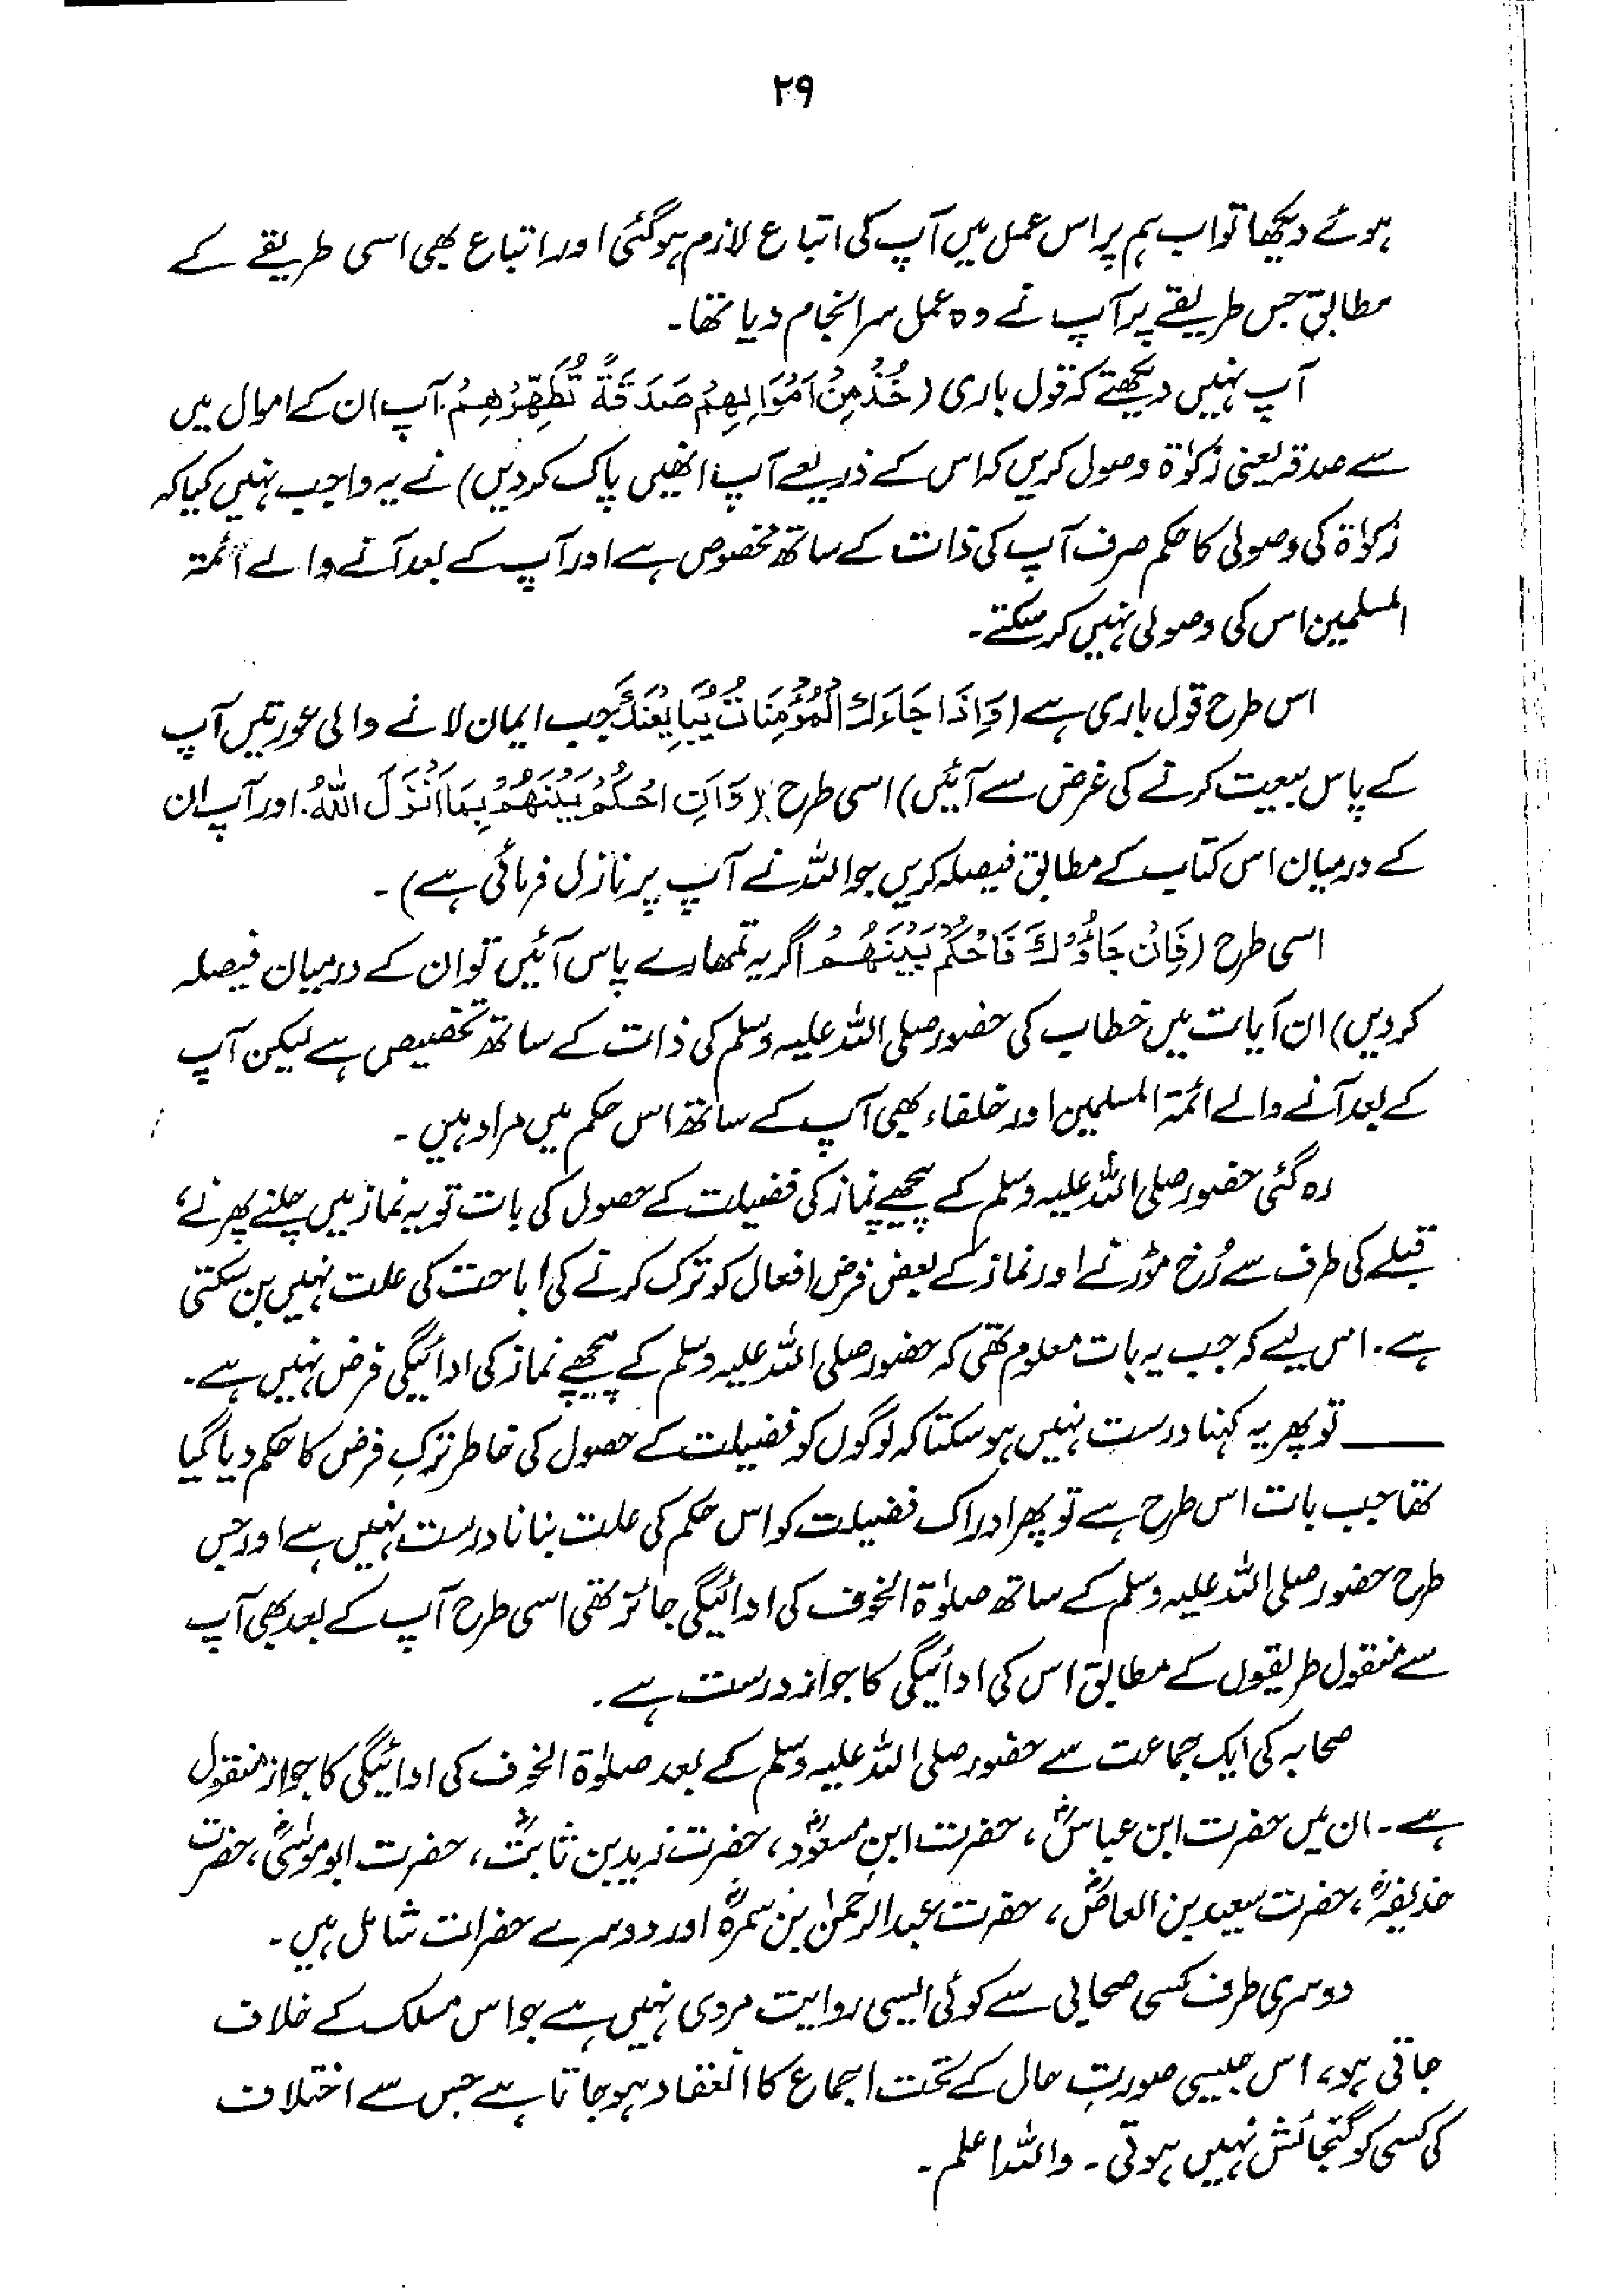 ۲۹
ہوئے دیکھا تو اب ہم پر اس عمل میں آپ کی اتباع لازم ہوگئی اور اتباع بھی اسی طریقے کے
مطابق جس طریقے پر آپ نے وہ عمل سرانجام دیا تھا۔
آپ نہیں دیکھتے کہ قول باری (خُذْ مِنْ اَمْوَالِهِمْ صَدَقَةً تُطَهِّرُهُمْ۔ آپ ان کے اموال میں
سے صدقہ یعنی زکوٰۃ وصول کریں کہ اس کے ذریعے آپ انھیں پاک کردیں) نے یہ واجب نہیں کیا کہ
زکوٰۃ کی وصولی کا حکم صرف آپ کی ذات کے ساتھ مخصوص ہے اور آپ کے بعد آنے والے ائمۃ
المسلمین اس کی وصولی نہیں کرسکتے۔
اس طرح قول باری ہے (وَاِذَا جَاءَكَ الْمُؤْمِنَاتُ يُبَايِعْنَكَ جب ایمان لانے والی عورتیں آپ
کے پاس بیعت کرنے کی غرض سے آئیں) اسی طرح (وَاَنِ احْكُمْ بَيْنَهُمْ بِمَا اَنْزَلَ اللّٰهُ۔ اور آپ ان
کے درمیان اس کتاب کے مطابق فیصلہ کریں جو اللہ نے آپ پر نازل فرمائی ہے)۔
اسی طرح (فَاِنْ جَاؤُوْكَ فَاحْكُمْ بَيْنَهُمْ اگر یہ تمھارے پاس آئیں تو ان کے درمیان فیصلہ
کردیں) ان آیات میں خطاب کی حضور صلی اللہ علیہ وسلم کی ذات کے ساتھ تخصیص ہے لیکن آپ
کے بعد آنے والے ائمۃ المسلمین اور خلفاء بھی آپ کے ساتھ اس حکم میں مراد ہیں۔
رہ گئی حضور صلی اللہ علیہ وسلم کے پیچھے نماز کی فضیلت کے حصول کی بات تو یہ نماز میں چلنے پھرنے،
قبلے کی طرف سے رُخ موڑنے اور نماز کے بعض فرض افعال کو ترک کرنے کی اباحت کی علت نہیں بن سکتی
ہے۔ اس لیے کہ جب یہ بات معلوم تھی کہ حضور صلی اللہ علیہ وسلم کے پیچھے نماز کی ادائیگی فرض نہیں ہے۔
ــــــــ تو پھر یہ کہنا درست نہیں ہوسکتا کہ لوگوں کو فضیلت کے حصول کی خاطر ترکِ فرض کا حکم دیا گیا
تھا جب بات اس طرح ہے تو پھر ادراک فضیلت کو اس حکم کی علت بنانا درست نہیں ہے اور جس
طرح حضور صلی اللہ علیہ وسلم کے ساتھ صلوٰۃ الخوف کی ادائیگی جائز تھی اسی طرح آپ کے بعد بھی آپ
سے منقول طریقوں کے مطابق اس کی ادائیگی کا جواز درست ہے۔
صحابہ کی ایک جماعت سے حضور صلی اللہ علیہ وسلم کے بعد صلوٰۃ الخوف کی ادائیگی کا جواز منقول
ہے۔ ان میں حضرت ابن عباسؓ، حضرت ابنِ مسعودؓ، حضرت زید بن ثابتؓ، حضرت ابو موسٰیؓ، حضرت
حذیفہؓ، حضرت سعید بن العاصؓ، حضرت عبدالرحمٰن بن سمرہؓ اور دوسرے حضرات شامل ہیں۔
دوسری طرف کسی صحابی سے کوئی ایسی روایت مروی نہیں ہے جو اس مسلک کے خلاف
جاتی ہو، اس جیسی صورتِ حال کے تحت اجماع کا انعقاد ہو جاتا ہے جس سے اختلاف
کی کسی کو گنجائش نہیں ہوتی۔ واللہ اعلم۔